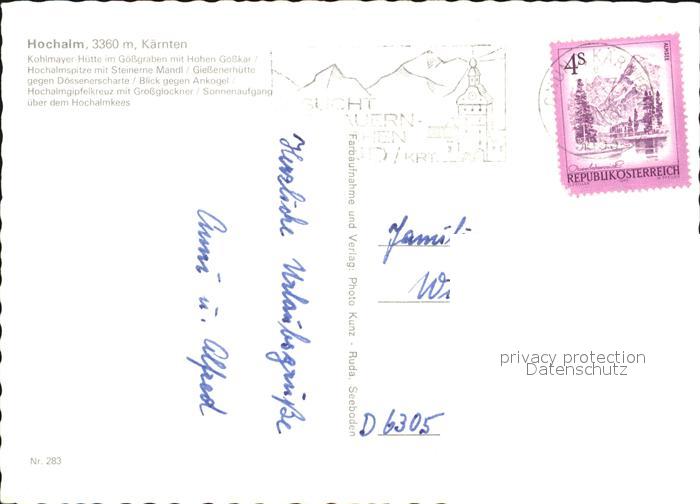 Hochalm, 3360 m, Kärnten
Kohlmayer-Hütte im Gößgraben mit Hohen Gößkar /
Hochalmspitze mit Steinerne Mandl / Gießenerhütte
gegen Dössenerscharte / Blick gegen Ankogel /
Hochalmgipfelkreuz mit Großglockner / Sonnenaufgang
über dem Hochalmkees
SUCHT
KRT.
4S
ALMSEE
REPUBLIK ÖSTERREICH
Herzliche Urlaubsgrüße
Anni u. Alfred
Farbaufnahme und Verlag: Photo Kunz - Ruda, Seeboden
Famil
Wi
D 6305
privacy protection
Datenschutz
Nr. 283